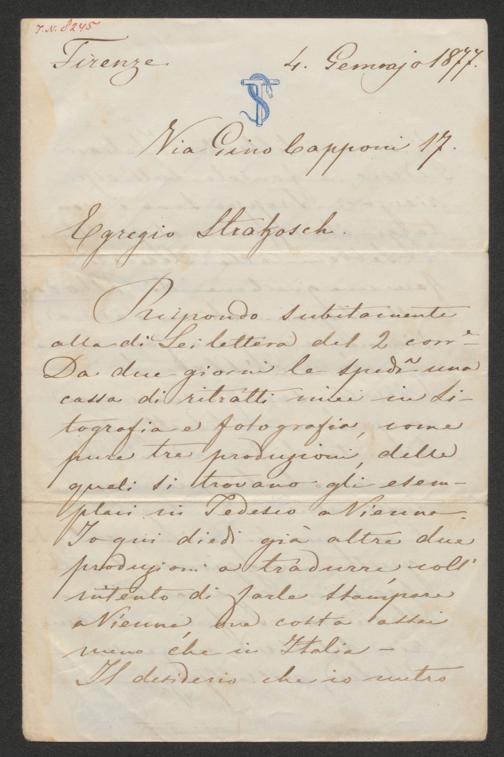 I.N. 8245
Firenze 4. Gennajo 1877.
Via Gino Capponi 17.
Egregio Strakosch.
Rispondo subitamente
alla di Lei lettera del 2 corr.e
Da due giorni le spedii una
cassa di ritratti miei in Li-
tografia e fotografia, come
pure tre produzioni, delle
queli si trovano gli esem-
plari in Tedesco a Vienna.
Io qui diedi già altre due
produzioni a tradurre coll'
intento di farle stampare
a Vienna ove costa assai
meno che in Italia –
Il desiderio che io nutro